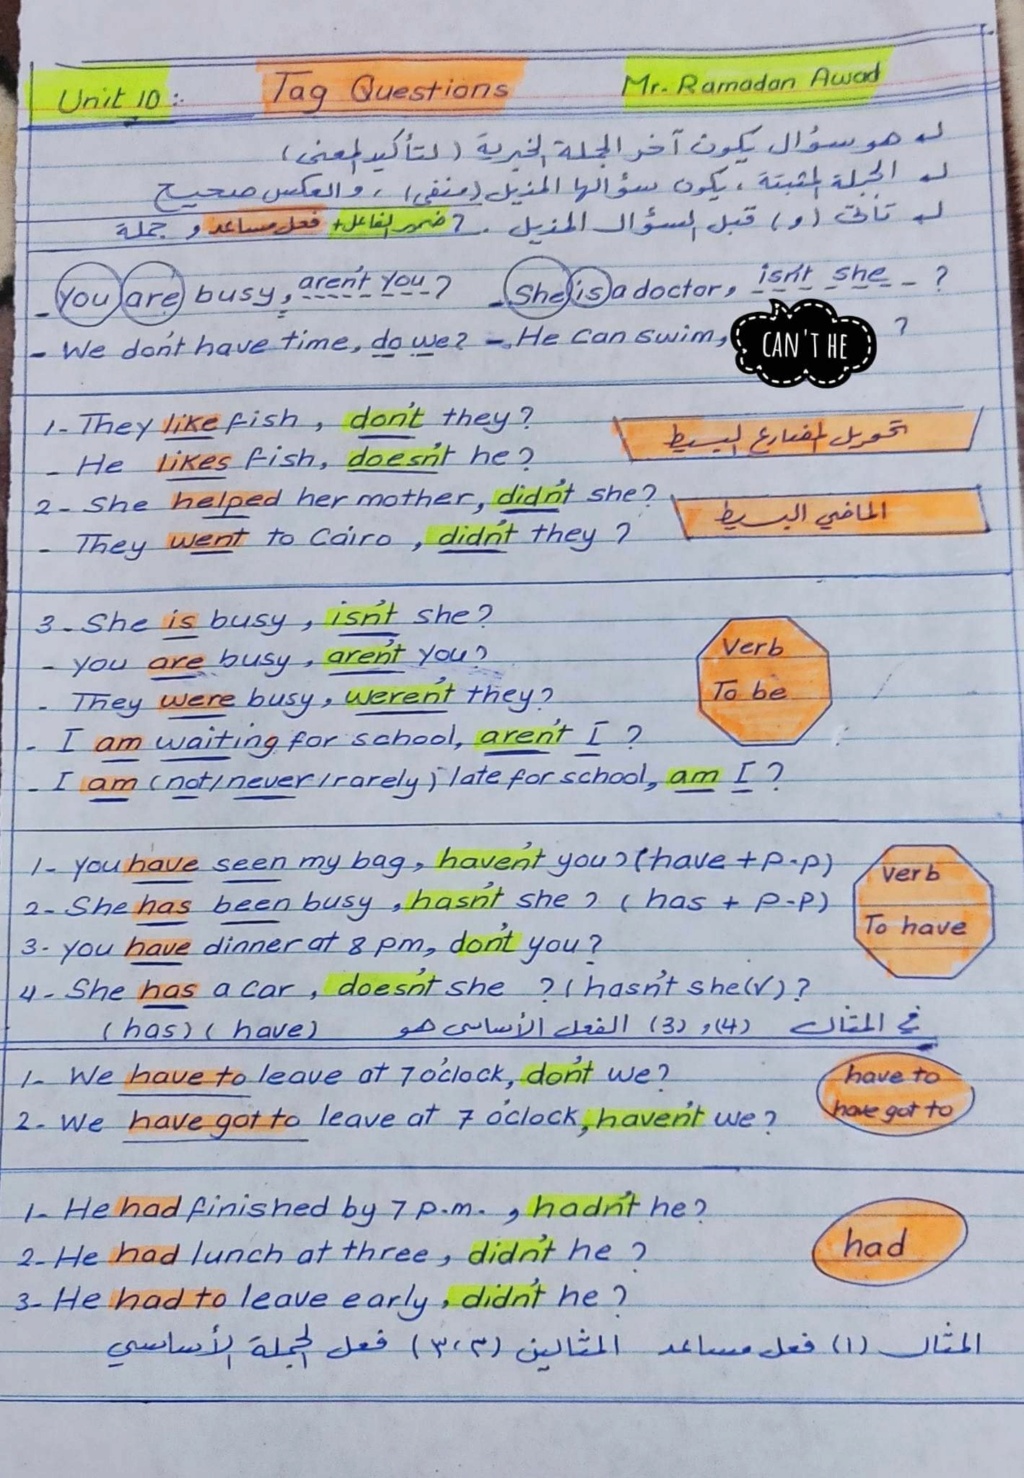 Unit 10: Tag Questions Mr. Ramadan Awad
هو سؤال يكون آخر الجملة الخبرية (لتأكيد المعنى)
الجملة المثبتة، يكون سؤالها المذيل (منفى)، والعكس صحيح
تأتى (و) قبل السؤال المذيل. ? ضمير الفاعل + فعل مساعد و جملة
- You are busy, aren't you? - She is a doctor, isn't she ?
- We don't have time, do we? - He can swim, CAN'T HE ?
1- They like fish, don't they? تحويل المضارع البسيط
- He likes fish, doesn't he?
2- She helped her mother, didn't she? الماضي البسيط
- They went to Cairo, didn't they?
3- She is busy, isn't she? Verb
- you are busy, aren't you? To be
- They were busy, weren't they?
- I am waiting for school, aren't I ?
- I am (not/never/rarely) late for school, am I ?
1- you have seen my bag, haven't you? (have + p.p)
2- She has been busy, hasn't she ? ( has + p.p) Verb
3- you have dinner at 8 pm, don't you? To have
4- She has a car, doesn't she ? (hasn't she(√)?
في المثال (4)،(3) الفعل الأساسى هو (have) (has)
1- We have to leave at 7 o'clock, don't we? have to
2- We have got to leave at 7 o'clock, haven't we? have got to
1- He had finished by 7 p.m., hadn't he?
2- He had lunch at three, didn't he ? had
3- He had to leave early, didn't he?
المثال (١) فعل مساعد المثالين (٢،٣) فعل الجملة الأساسي